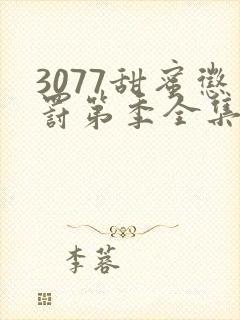 3077甜蜜惩
罚第季全集
李蓉